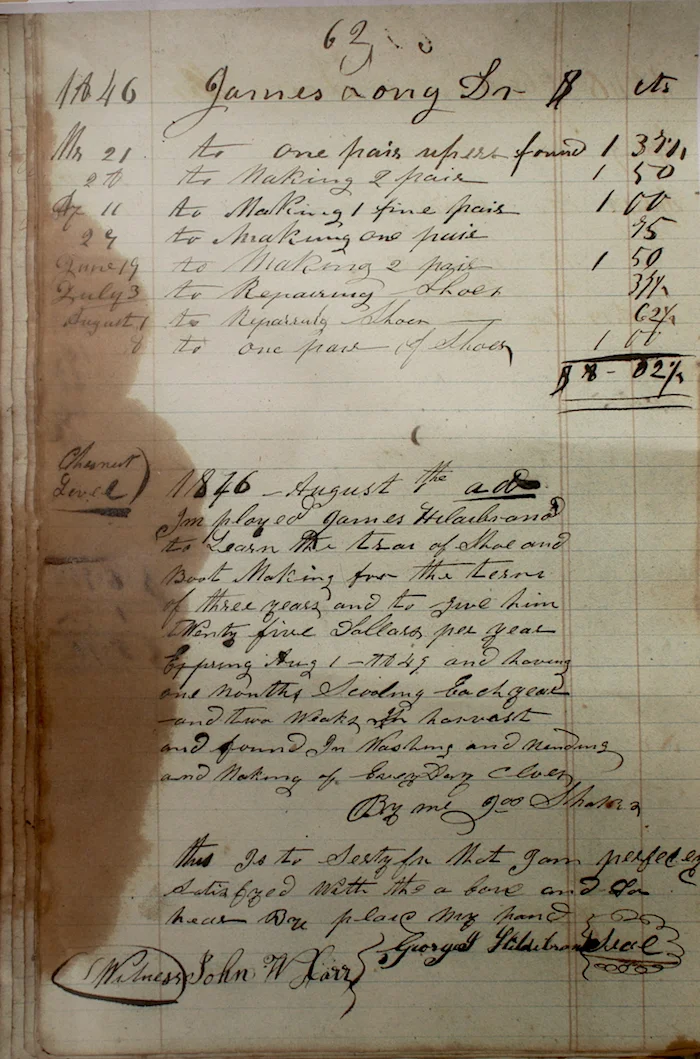 63
1846 James Long Dr $ cts
Mr 21 to one pair upers found 1 37½
28 to Making 2 pair 1 50
Ap 11 to Making 1 fine pair 1 00
29 to Making one pair 75
June 19 to Making 2 pair 1 50
July 3 to Repairing Shoes 37½
August 1 to Repairing Shoes 62½
8 to one pair of Shoes 1 00
$ 8 - 02½
Chesnut
Level
1846 - August the
Imployed James Hildibrand
to Learn the trai of Shoe and
Boot Making for the term
of three years and to give him
twenty five Dollars per year
Expring Aug 1 - 1849 and having
one Months Scooling Each year
and two Weaks In harvest
and found In Washing and Mending
and Making of Every Day Cloes
By me
this Is to Sertyfy that I am perfecly
Satisfyed With the a bove and Do
hear By plaic My hand
George Hildibrand Seal
Witness John W